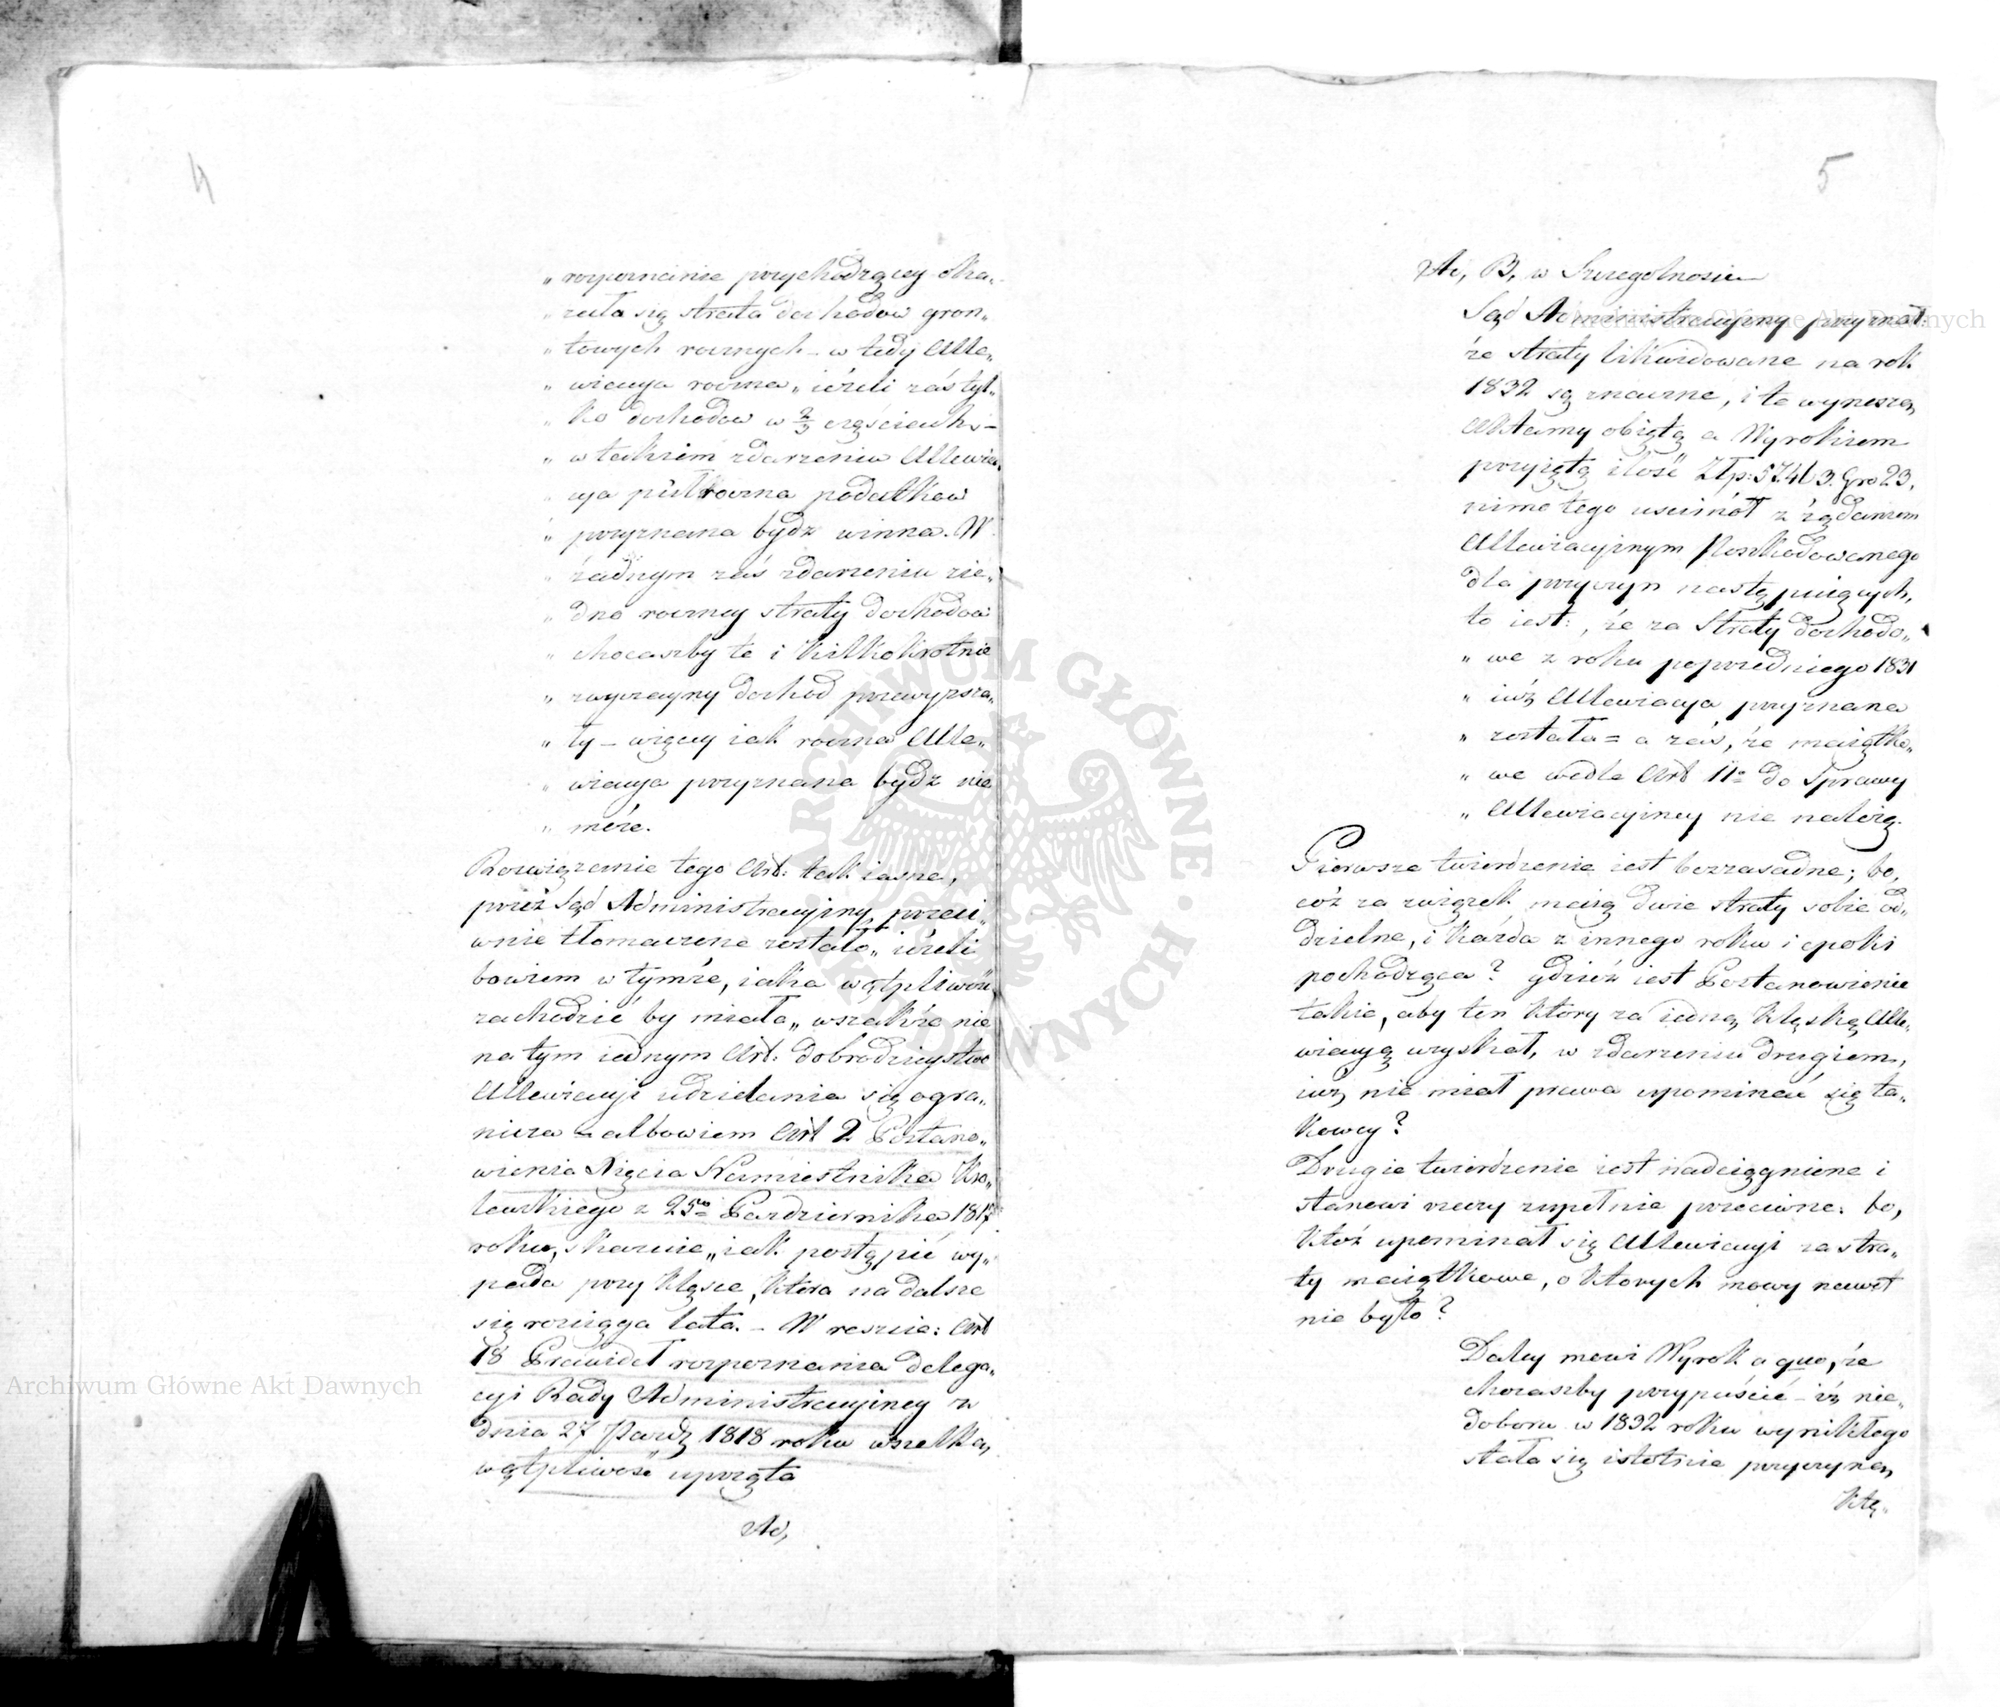 4
„ rozpoznanie przychodzącey oka„
„ zała się strata dochodów gron„
„ towych rocznych – w tedy Alle„
„ wiacya roczna „ ieżeli zaś tyl„
„ ko dochodów w 2/3 częściach –
„ w takiem zdarzeniu Allewia„
„ cya pułroczna podatków
„ przyznana bydź winna. W
„ żadnym zaś zdarzeniu zie„
„ dno roczney straty dochodów
„ chociaszby te i kilkokrotnie
„ zwyczayny dochód przewyższa„
„ ły – więcey iak roczna Alle„
„ wiacya przyznana bydź nie
„ może.
Rozwiązanie tego Art: tak iasne,
przez Sąd Administracyiny przeci„
wnie tłomaczone zostało „ ieżeli
bowiem w tymże, iaka wątpliwość
zachodzić by miała „ wszakże nie
na tym iednym Art: dobrodzieystwo
Allewiacyi udzielania się ogra„
nicza – albowiem Art 2 Postano„
wienia Xięcia Namiestnika Kró„
lewskiego z 25go Pazdziernika 1817
roku, skazuie „ iak postąpić wy„
pada przy klęsce, która na dalsze
się rozciąga lata. – W reszcie: Art
18 Prawideł rozpoznania delega„
cyi Rady Administracyiney z
dnia 27 Pazdz 1818 roku wszelką
wątpliwość uprząta
Ad,
5
Ad, B, w Szczegolnosci
Sąd Administracyiny przyznał
że straty likwidowane na rok
1832 są znaczne, i te wynoszą
Aktami obiętą a Wyrokiem
przyiętą ilość Złp: 57413. Gro 23,
mimo tego usunął z żądaniem
Allewiacyinym Poszkodowanego
dla przyczyn następuiących,
to iest:, że za Straty dochodo„
„ we z roku poprzedniego 1831
„ iuż Allewiacya przyznana
„ została = a zaś, że maiątko„
„ we wedle Art 11o do Sprawy
„ Allewiacyiney nie należą.
Pierwsze twierdzenie iest bezzasadne; bo,
cóż za związek maią dwie straty sobie od„
dzielne, i każda z innego roku i epoki
pochodząca? gdzież iest Postanowienie
takie, aby ten który za iedną klęskę Alle„
wiacyą uzyskał, w zdarzeniu drugiem,
iuż nie miał prawa upominać się ta„
kowey?
Drugie twierdzenie iest nadciągnione i
stanowi rzeczy zupełnie przeciwne: bo,
któż upominał się Allewiacyi za stra„
ty maiątkowe, o których mowy nawet
nie było?
Daley mówi Wyrok a quo, że
choćaszby przypuścić – iż nie„
doboru w 1832 roku wynikłego
stała się istotnie przyczyną
klę„
Archiwum Główne Akt Dawnych
Archiwum Główne Akt Dawnych
ARCHIWUM GŁÓWNE AKT DAWNYCH